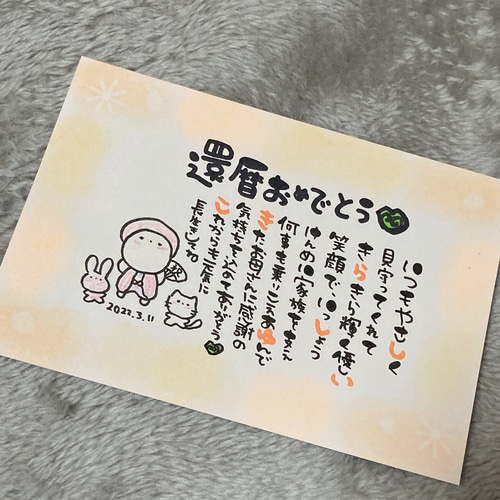 還暦おめでとう
いつもやさしく
見守ってくれて
きらきら輝く優しい
笑顔でいっしょう
けんめい家族を支え
何事も乗りこえあゆんで
きたお母さんに感謝の
気持ちを込めてありがとう
これからも元気に
長生きしてね
2022.3.11